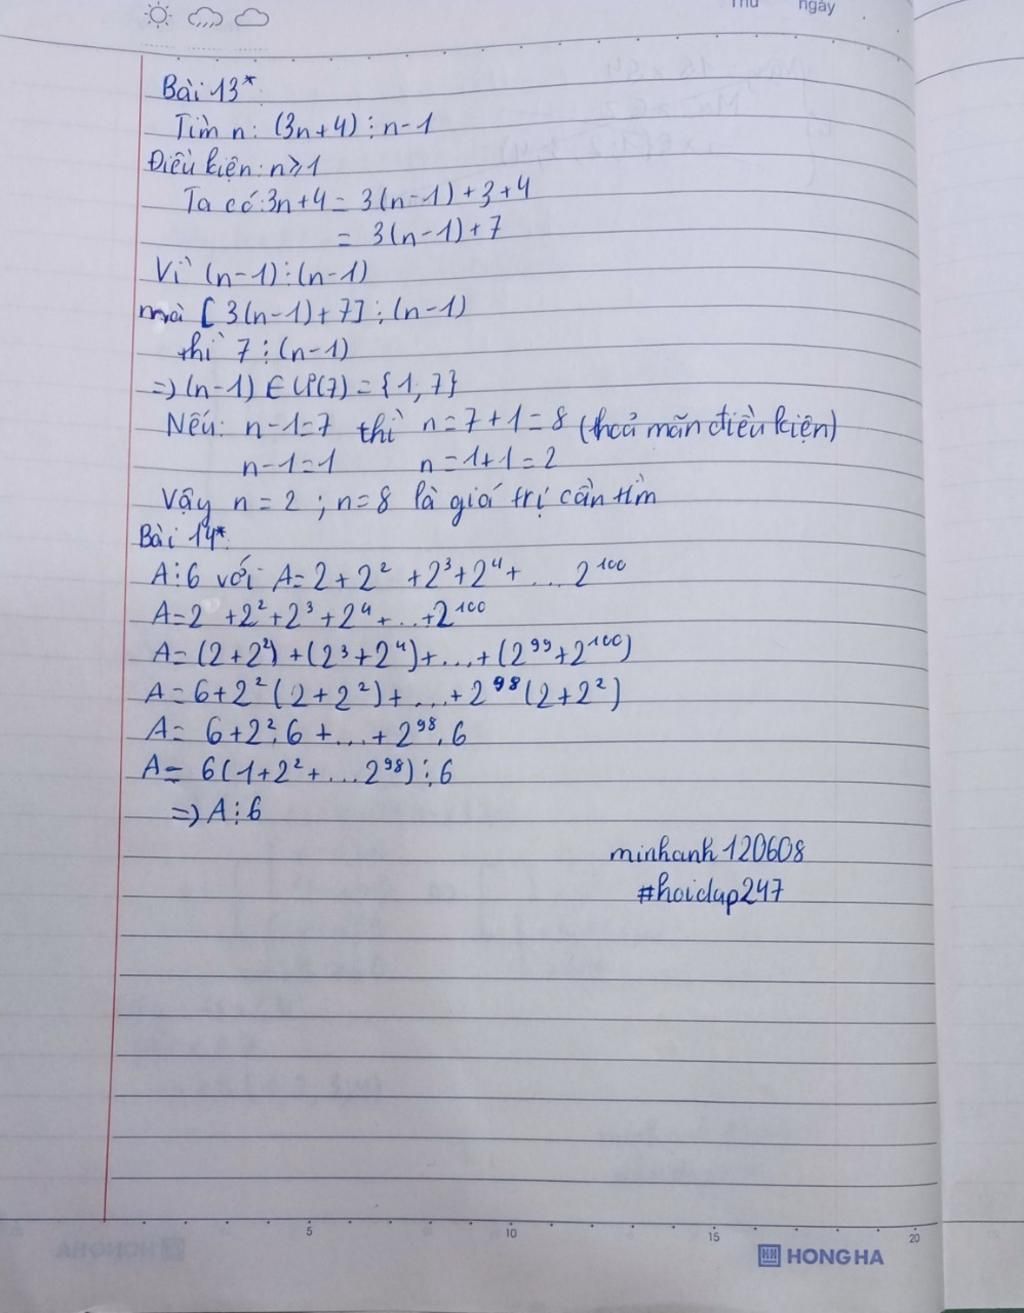 Thứ ngày
Bài 13*.
Tìm n: (3n+4) ⋮ n-1
Điều kiện: n ≥ 1
Ta có: 3n+4 = 3(n-1)+3+4
= 3(n-1)+7
Vì (n-1)⋮(n-1)
mà [3(n-1)+7]⋮(n-1)
thì 7⋮(n-1)
=> (n-1) ∈ Ư(7) = {1,7}
Nếu: n-1=7 thì n=7+1=8 (thoả mãn điều kiện)
n-1=1 n=1+1=2
Vậy n=2; n=8 là giá trị cần tìm
Bài 14*.
A⋮6 với A=2+2²+2³+2⁴+...2¹⁰⁰
A=2+2²+2³+2⁴+...+2¹⁰⁰
A=(2+2²)+(2³+2⁴)+...+(2⁹⁹+2¹⁰⁰)
A=6+2²(2+2²)+...+2⁹⁸(2+2²)
A=6+2².6+...+2⁹⁸.6
A=6(1+2²+...2⁹⁸)⋮6
=> A⋮6
minhanh120608
#hoidap247
5 10 15 20
HONG HA